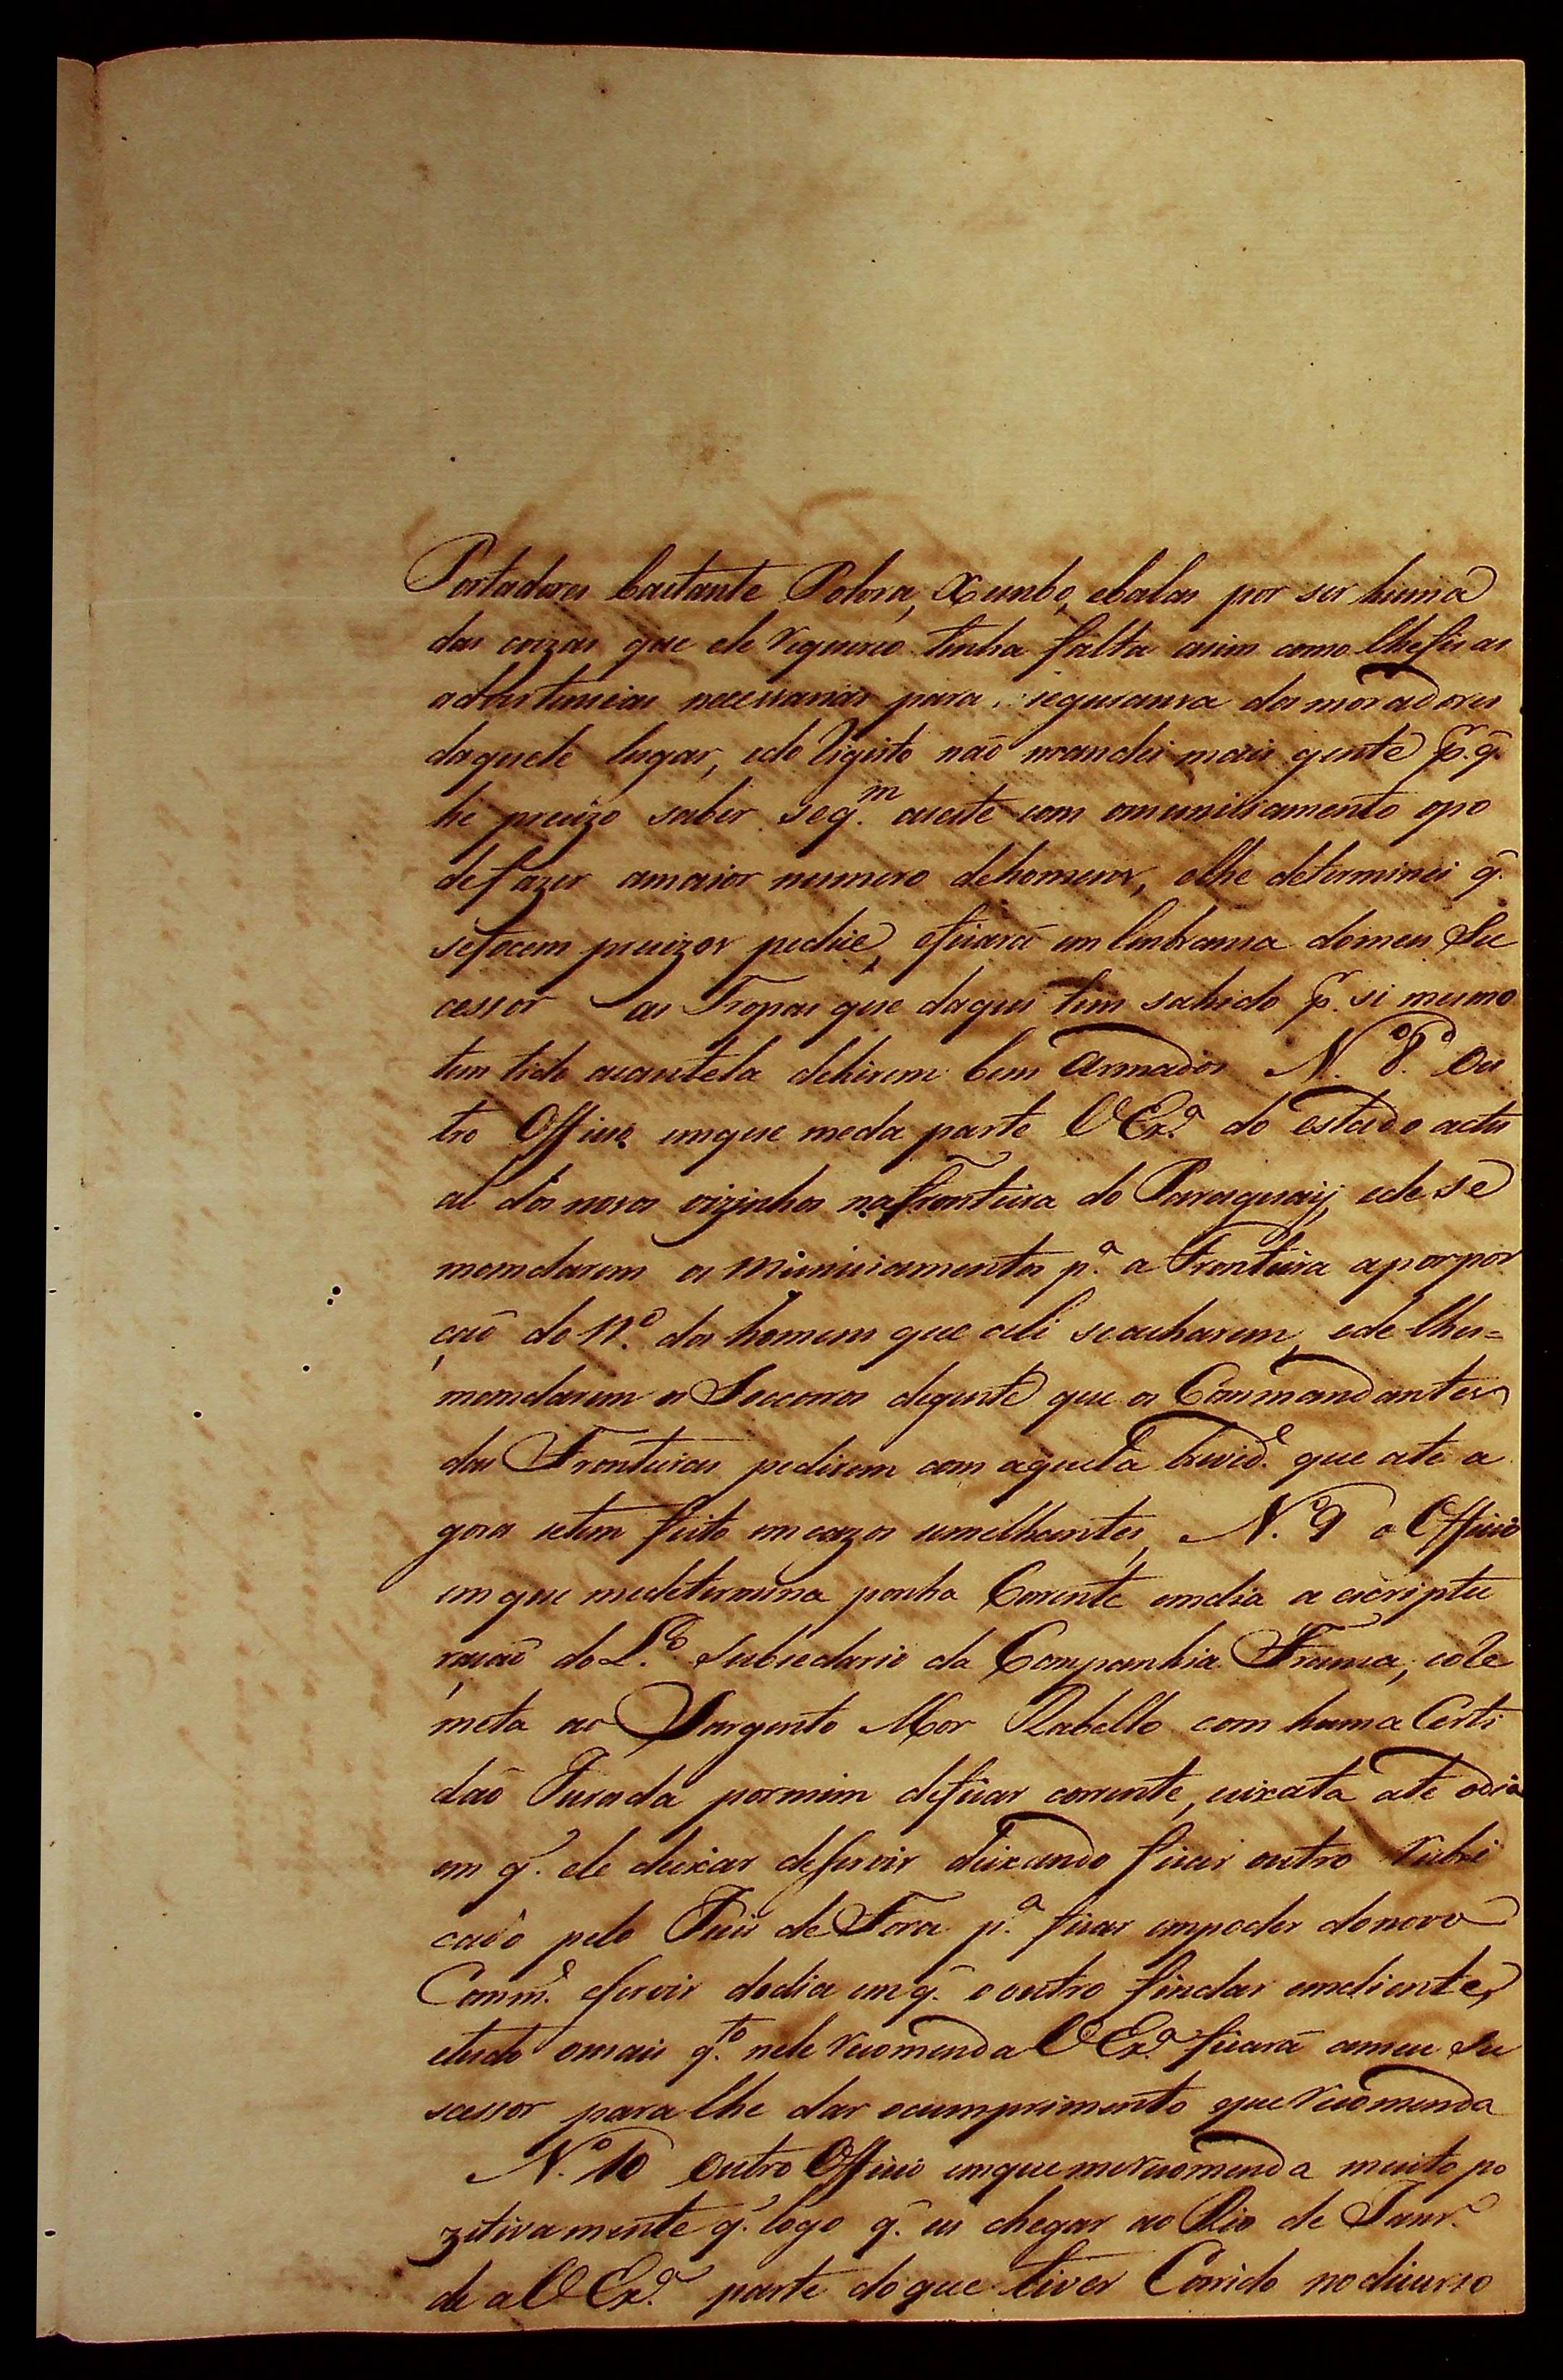 Portadores bastante Polvra, Xumbo, ebalas por ser huma
das coizas que ele requereo tinha falta asim como lhefis as
advertencias necessarias para seguransa dos moradores
daquele lugar, edo Rigisto não mandei mais gente p.r q̃.
he precizo saber seq.m aseite com omuniciamento opo
defazer amaior numero dehomens, elhe determinei q̃.
sefocem precizos pedise, eficará em lembransa domeu Su
cessor as Tropas que daqui tem sahido p.r si mesmo
tem tido acautela dehirem bem armados N.o 8.o Ou
tro Officio emque meda parte V Ex.a do estado actu
al dos novos vizinhos nafronteira do Paraguaÿ, ede se
mandarem os Municiamentos p.a a Fronteira aporpor
çaõ do N.o dos homens que ali seacharem, ede lhes=
mandarem os Soccoros degente que os Commandantes
das Fronteiras pedirem com aquela brivid.e que ate a
gora setem feito emcazos semelhantes, N.o 9 o Officio
em que medetermina ponha Corente emdia a escriptu
raçaõ do L.o Subsedario da Companhia Franca, eole
meta ao Sargento Mor Rabello com huma Certi
daõ Jurada pormim deficar corrente, eixata ate odia
em q̃. ele deixar deservir deixando ficar outro rubri
cado pelo Juis de Fora p.a ficar empoder donovo
Comm.e eservir dodia em q̃. o outro findar emdiente,
etudo omais q.to nele recomenda V Ex.a ficará ameu Su
scessor para lhe dar ocumprimento que recomenda
N.o 10 Outro Officio emque merecomenda muito po
zitivamente q̃. logo q̃. eu chegar ao Rio de Janr.o
de a V Ex.a parte doque tiver Corrido nodicurso